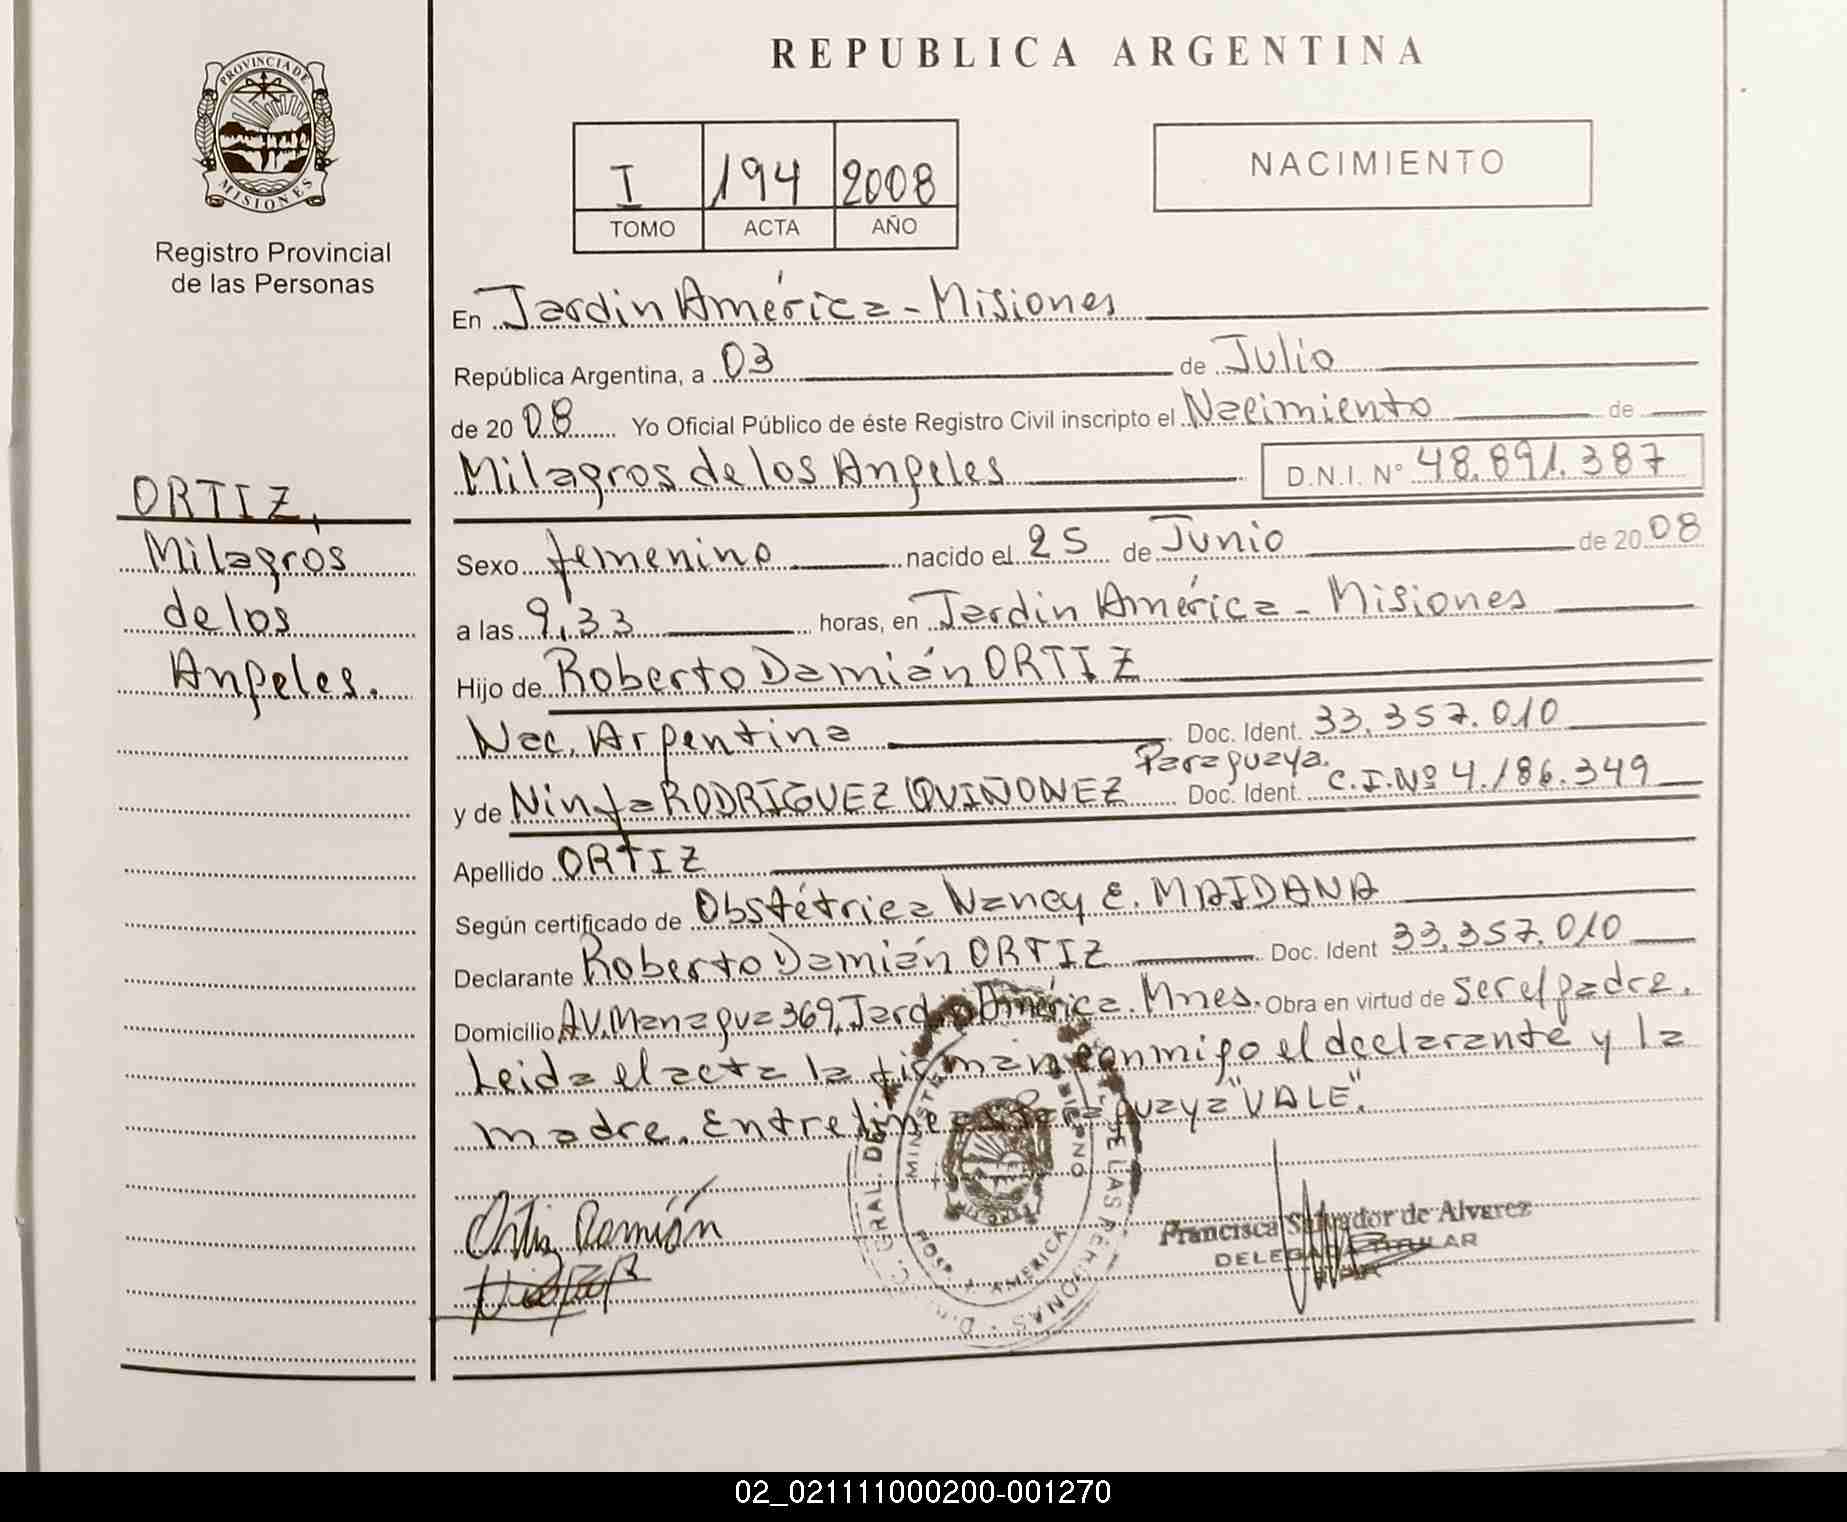 PROVINCIA DE
MISIONES
Registro Provincial
de las Personas
ORTIZ,
Milagros
de los
Angeles.
REPUBLICA ARGENTINA
I 194 2008
TOMO ACTA AÑO
NACIMIENTO
En Jardin América - Misiones
República Argentina, a 03 de Julio
de 20 08 Yo Oficial Público de éste Registro Civil inscripto el Nacimiento de
Milagros de los Angeles D.N.I. N° 48.891.387
Sexo femenino nacido el 25 de Junio de 20 08
a las 9,33 horas, en Jardin América - Misiones
Hijo de Roberto Damián ORTIZ
Nac. Argentina Doc. Ident. 33.357.010
Paraguaya.
y de Ninfa RODRIGUEZ QUIÑONEZ Doc. Ident. C.I.Nº 4.186.349
Apellido ORTIZ
Según certificado de Obstétrica Nancy E. MAIDANA
Declarante Roberto Damián ORTIZ Doc. Ident 33.357.010
Domicilio AV. Managua 369, Jardin América. Mnes. Obra en virtud de ser el padre.
Leida el acta la firman conmigo el declarante y la
madre. Entrelineas Paraguaya "VALE".
Ortiz Damián
Francisca Salvador de Alvarez
DELEGADA TITULAR
02_021111000200-001270